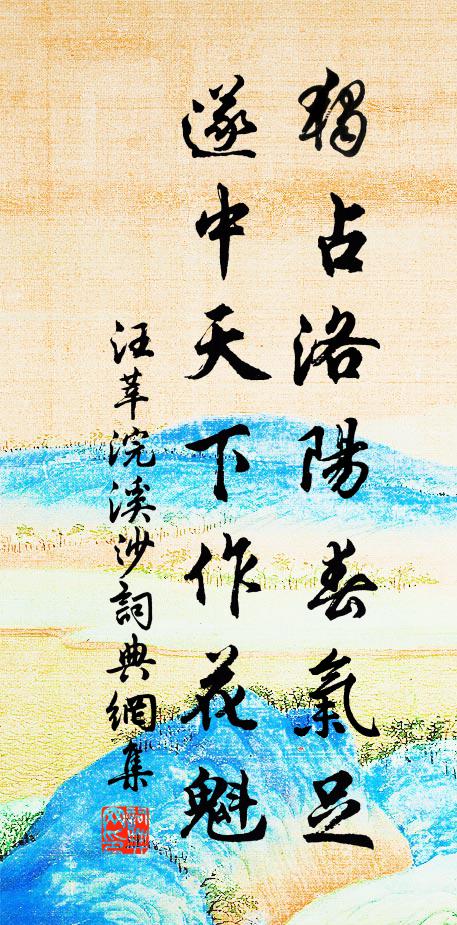 獨占洛陽春氣足
遂中天下作花魁
汪莘浣溪沙詞典網集